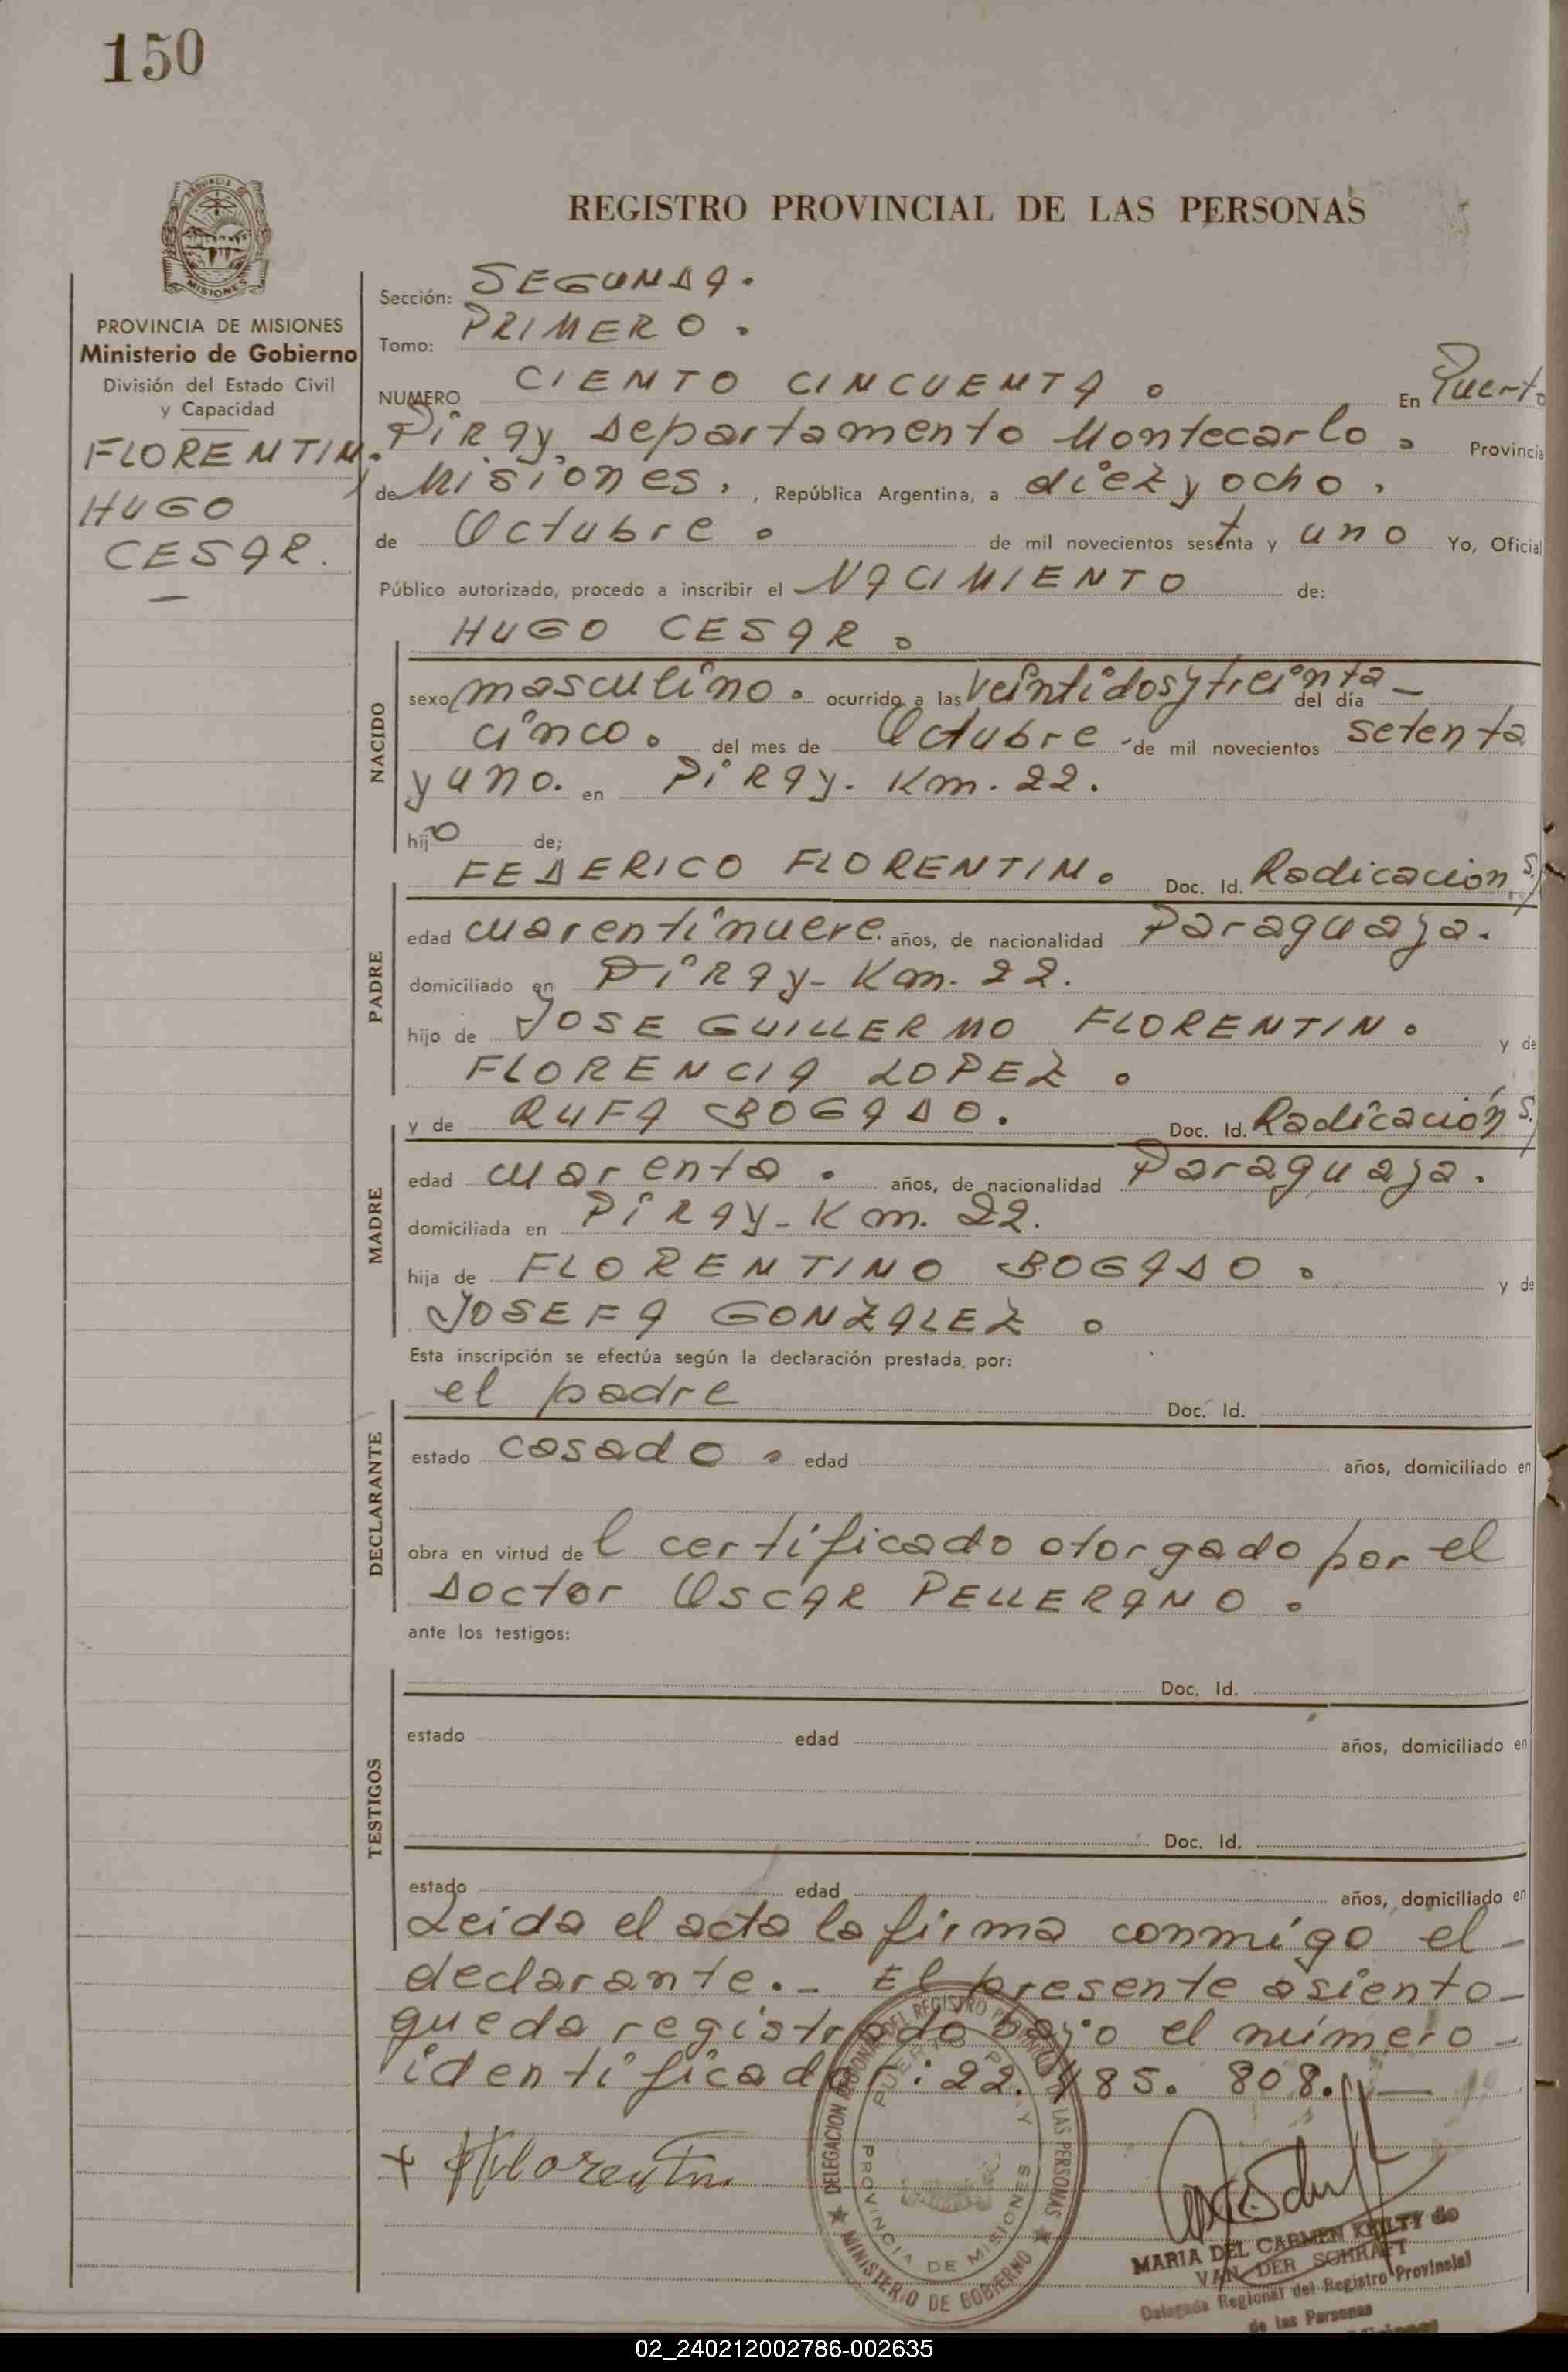 150
REGISTRO PROVINCIAL DE LAS PERSONAS
PROVINCIA DE MISIONES
MISIONES
PROVINCIA DE MISIONES
Ministerio de Gobierno
División del Estado Civil
y Capacidad
FLORENTIN.
HUGO
CESAR.
Sección: SEGUNDA.
Tomo: PRIMERO.
NUMERO CIENTO CINCUENTA. En Puerto
Piray, Departamento Montecarlo. Provincia
de Misiones. , República Argentina, a diez y ocho.
de Octubre. de mil novecientos setenta y uno Yo, Oficial
Público autorizado, procedo a inscribir el NACIMIENTO de:
HUGO CESAR.
NACIDO
sexo masculino. ocurrido a las veintidos y treinta - del día
cinco. del mes de Octubre - de mil novecientos setenta
y uno. en Piray. Km. 22.
hijo de;
FEDERICO FLORENTIN. Doc. Id. Radicación S/
PADRE
edad cuarentinueve. años, de nacionalidad Paraguaya.
domiciliado en Piray- Km. 22.
hijo de JOSE GUILLERMO FLORENTIN. y de
FLORENCIA LOPEZ.
y de RUFA BOGADO. Doc. Id. Radicación S/
MADRE
edad cuarenta. años, de nacionalidad Paraguaya.
domiciliada en Piray- Km. 22.
hija de FLORENTINO BOGADO. y de
JOSEFA GONZALEZ.
Esta inscripción se efectúa según la declaración prestada, por:
el padre Doc. Id.
DECLARANTE
estado casado. edad años, domiciliado en
obra en virtud del certificado otorgado por el
Doctor OSCAR PELLERANO.
ante los testigos:
TESTIGOS
Doc. Id.
estado edad años, domiciliado en
Doc. Id.
estado edad años, domiciliado en
Leida el acta la firma conmigo el -
declarante.- El presente asiento -
queda registrado bajo el número -
identificador: 22. 485. 808. -
+ Florentin
DELEGACION REGIONAL DEL REGISTRO PROVINCIAL DE LAS PERSONAS
PUERTO PIRAY
PROVINCIA DE MISIONES
MINISTERIO DE GOBIERNO
MARIA DEL CARMEN KEILTY de
VAN DER SCHRAFT
Delegada Regional del Registro Provincial
de las Personas
02_240212002786-002635